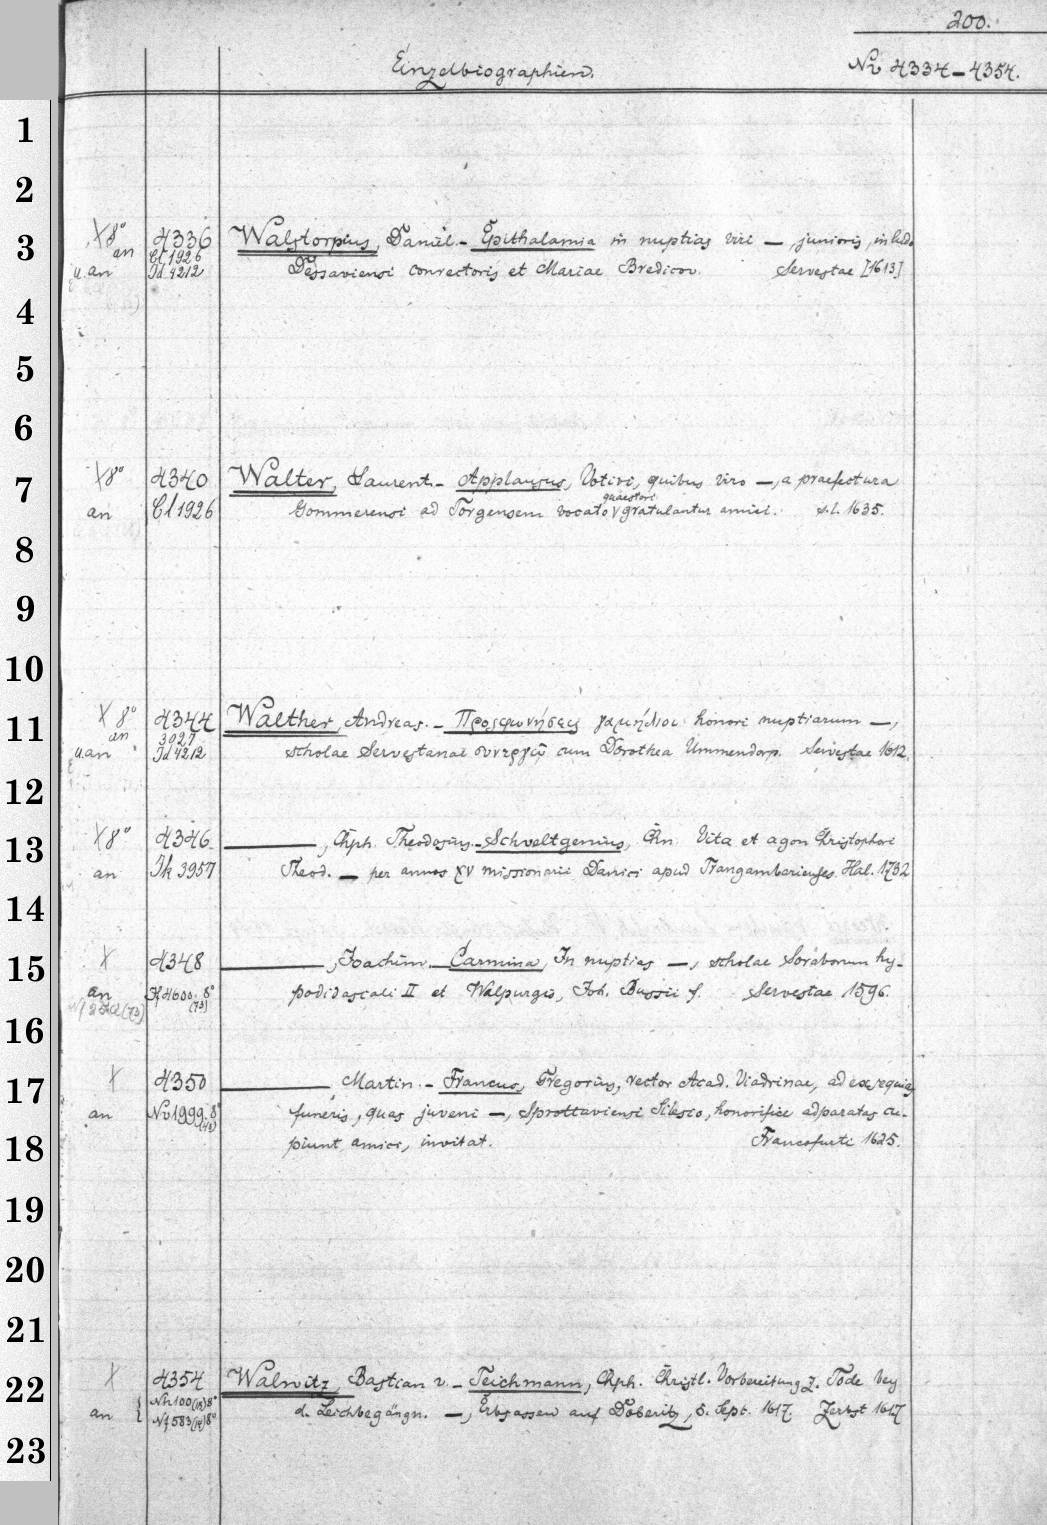 200.
Einzelbiographien.
No 4334–4354.
1
2
3
X 8° 4336 Walstorpius, Daniel. – Epithalamia in nuptias viri —, junioris, in ludo
an Cl 1926
u. an Id 4212 Dessaviensi conrectoris et Mariae Bredicov. Servestae [1613]
4
5
6
7
X 8° 4340 Walter, Laurent. – Applausus, Votivi, quibus viro —, a praefectura
quaestori
an Cl 1926 Gommerensi ad Torgensem vocato √ gratulantur amici. s. l. 1635.
8
9
10
11
X 8° 4344 Walther, Andreas. – Προσφωνήσεις γαμήλιοι honori nuptiarum —,
an 3027
u. an Id 4212 scholae Servestanae συνεργῷ cum Dorothea Ummendorp. Servestae 1612.
12
13
X 8° 4346 ———, Chph. Theodosius. – Schoeltgenius, Chn. Vita et agon Christophori
an Ik 3957 Theod. — per annos XV missionarii Danici apud Trangambarienses. Hal. 1732
14
15
X 4348 ———, Joachim. – Carmina, In nuptias —, scholae Soraborum hy-
an Kf 4600. 8° (73) podidascali II et Walpurgis, Joh. Bussii f. Servestae 1596.
16
17
X 4350 ——— Martin. – Francus, Gregorius, rector Acad. Viadrinae, ad exsequias
an No 1999. 8° funeris, quas juveni —, Sprottaviensi Silesio, honorifice adparatas cu-
18
piunt amici, invitat. Francofurti 1625.
19
20
21
22
X 4354 Walwitz, Bastian v. – Teichmann, Chph. Christl. Vorbereitung z. Tode bey
an { Nh 100 8° d. Leichbegängn. —, Erbsassen auf Döberitz, 5. Sept. 1617. Zerbst 1617
Nf 583 8°
23